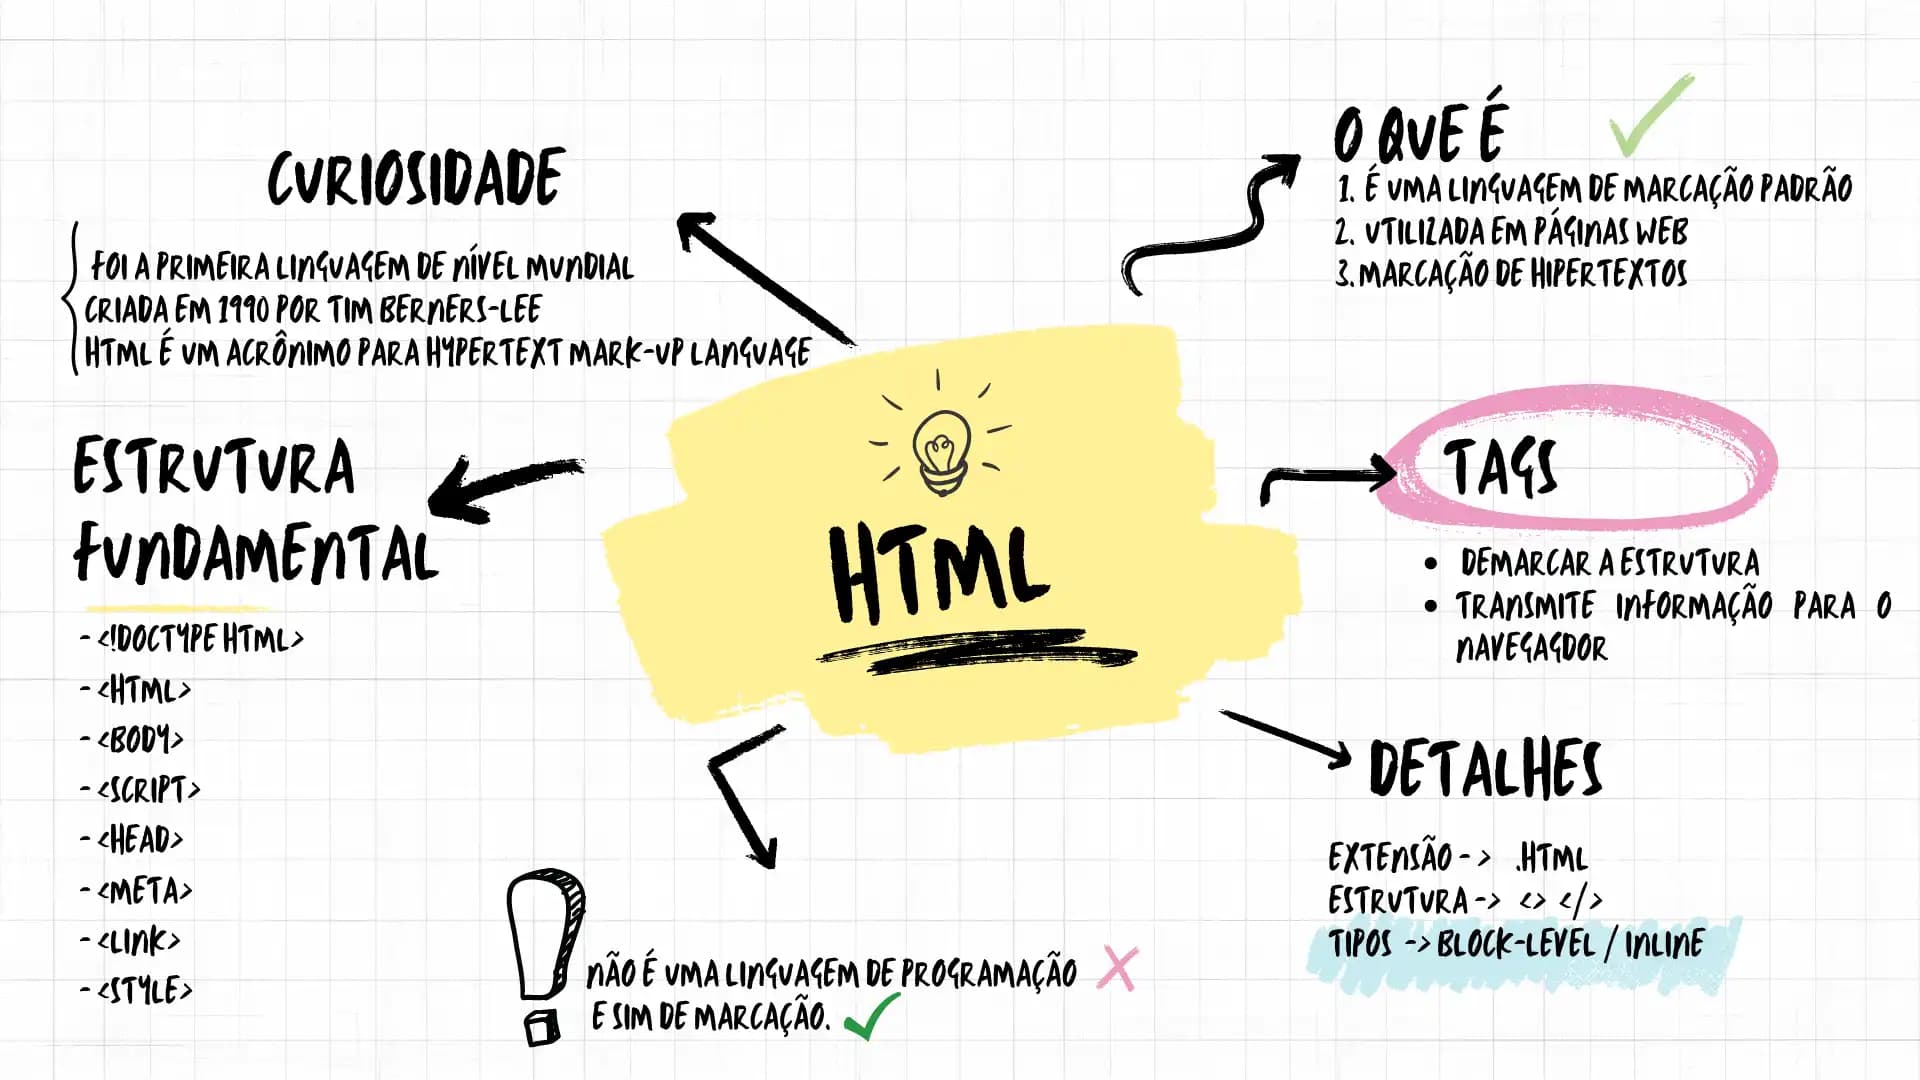 CURIOSIDADE
FOI A PRIMEIRA LINGUAGEM DE NÍVEL MUNDIAL
CRIADA EM 1990 POR TIM BERNERS-LEE
HTML É UM ACRÔNIMO PARA HYPERTEXT MARK-UP LANGUAGE
O QUE É
1. É UMA LINGUAGEM DE MARCAÇÃO PADRÃO
2. UTILIZADA EM PÁGINAS WEB
3. MARCAÇÃO DE HIPERTEXTOS
ESTRUTURA
FUNDAMENTAL
- <!DOCTYPE HTML>
- <HTML>
- <BODY>
- <SCRIPT>
- <HEAD>
- <META>
- <LINK>
- <STYLE>
HTML
TAGS
• DEMARCAR A ESTRUTURA
• TRANSMITE INFORMAÇÃO PARA O
NAVEGAGDOR
DETALHES
EXTENSÃO -> .HTML
ESTRUTURA -> <> </>
TIPOS -> BLOCK-LEVEL / INLINE
NÃO É UMA LINGUAGEM DE PROGRAMAÇÃO
E SIM DE MARCAÇÃO.